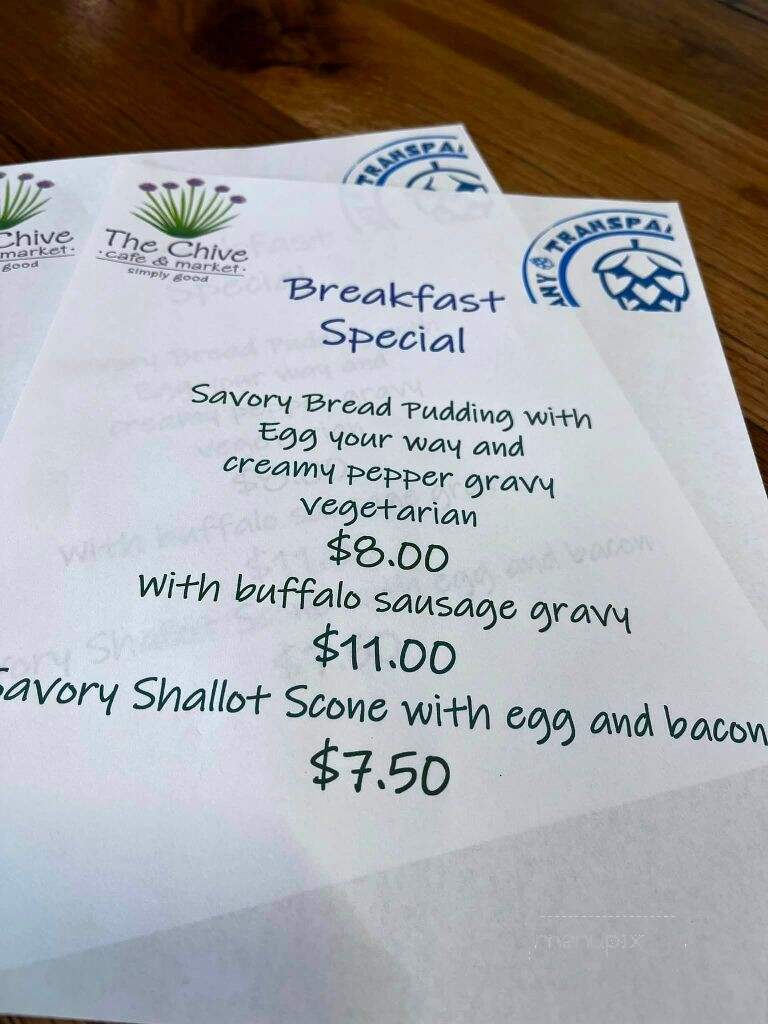 TRANSPA
Chive
market·
good
The Chive
·cafe & market·
simply good
ANY TRANSPA
Breakfast
Special
Savory Bread Pudding with
Egg your way and
creamy pepper gravy
vegetarian
$8.00
With buffalo sausage gravy
$11.00
Savory Shallot Scone with egg and bacon
$7.50
menupix